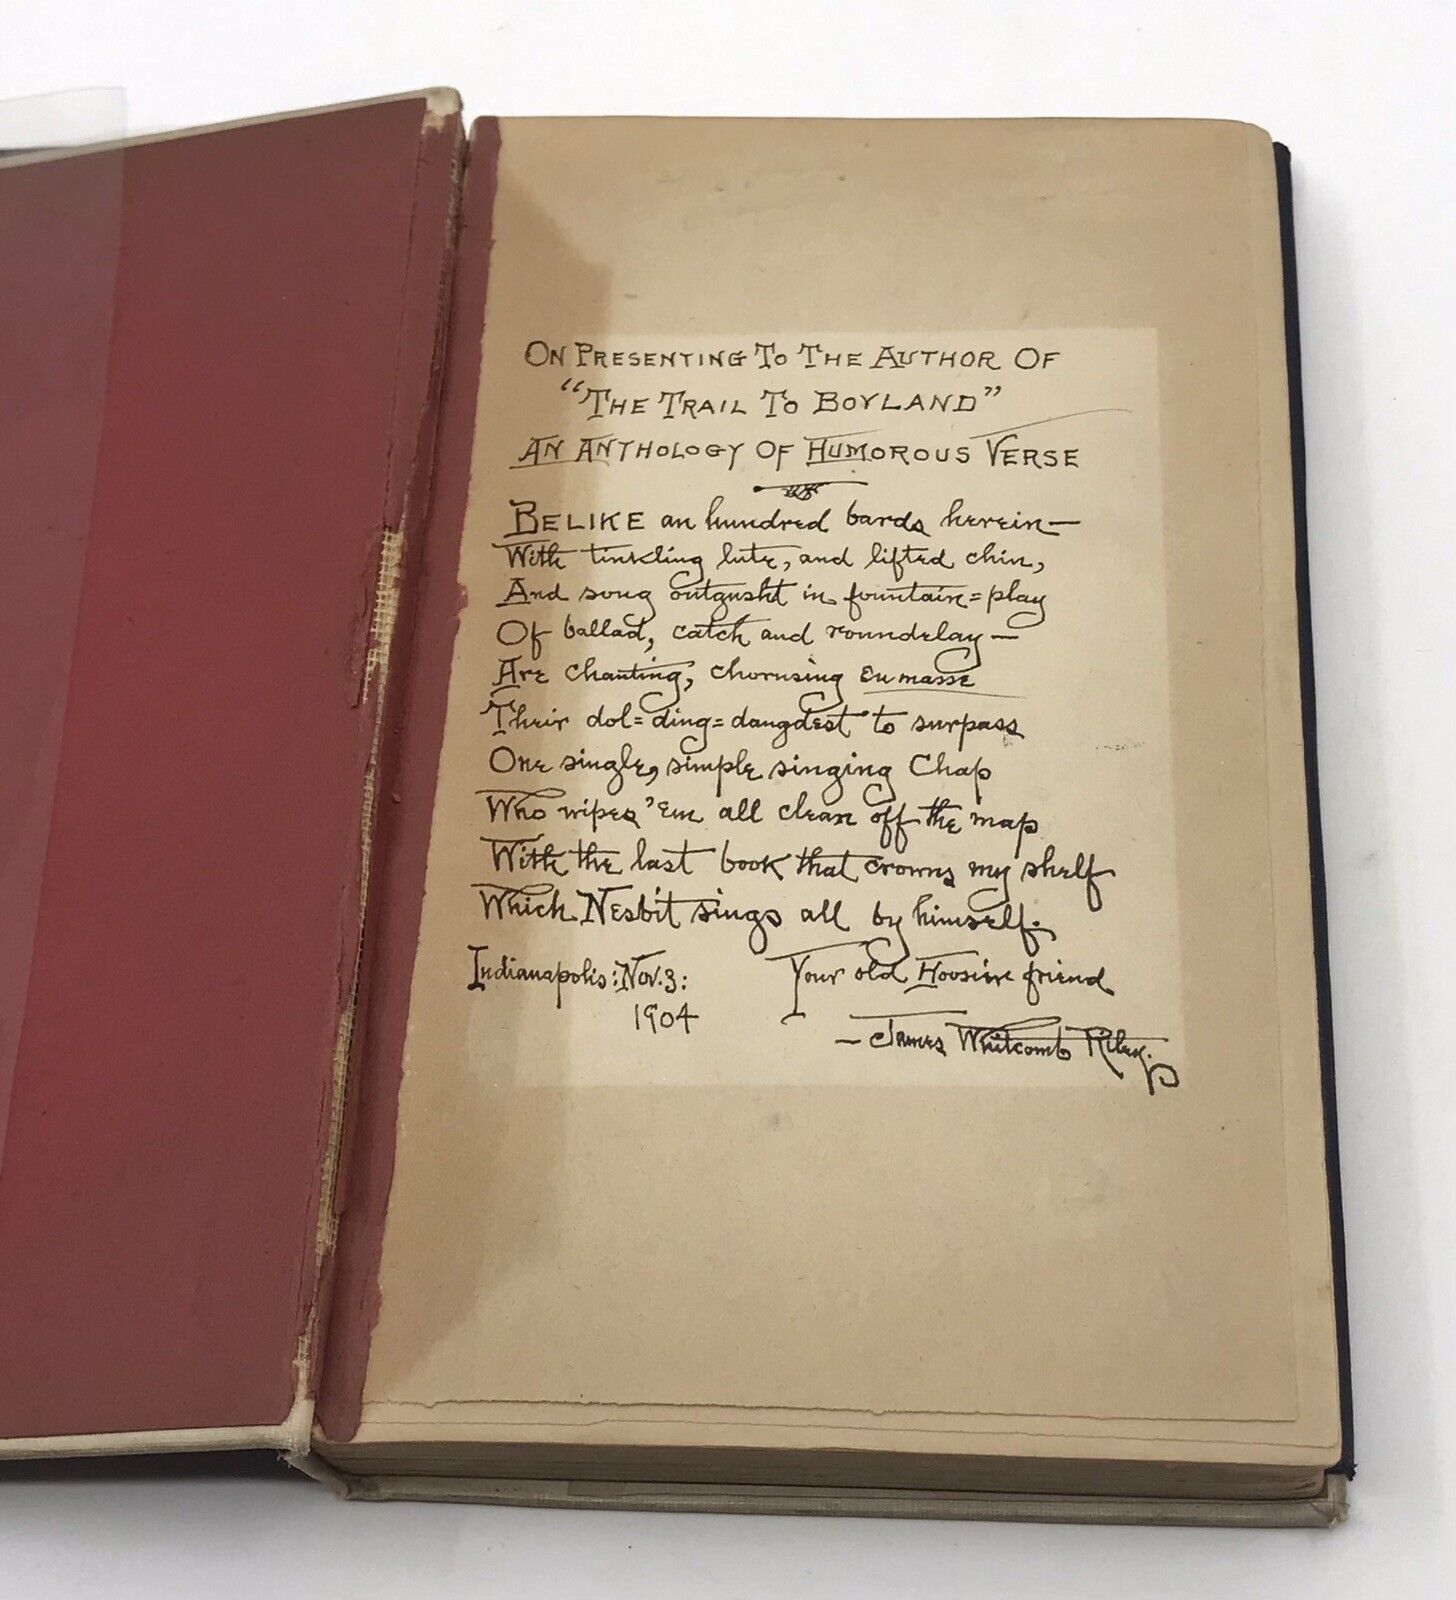 On Presenting To The Author Of
"The Trail To Boyland"
An Anthology Of Humorous Verse
Belike an hundred bards herein—
With tinkling lute, and lifted chin,
And song outgusht in fountain=play
Of ballad, catch and roundelay—
Are chanting, chorusing en masse
Their dol=ding=dangdest to surpass
One single, simple singing Chap
Who wipes 'em all clean off the map
With the last book that crowns my shelf
Which Nesbit sings all by himself.
Indianapolis: Nov. 3: Your old Hoosier friend
1904
—James Whitcomb Riley.